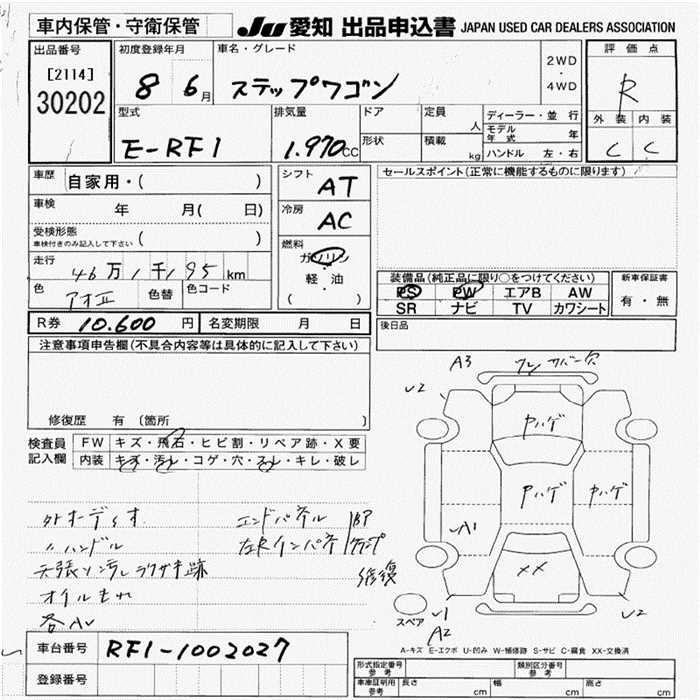 車内保管・守衛保管 JU 愛知 出品申込書 JAPAN USED CAR DEALERS ASSOCIATION
出品番号 初度登録年月 車名・グレード 2WD・4WD 評価点
[2114] 8 6月 ステップワゴン R
30202
型式 排気量 ドア 定員 人 ディーラー・並行 外装 内装
E-RF1 1.970cc 形状 積載 kg モデル年式 年 C C
ハンドル 左・右
車歴 自家用・( ) シフト AT セールスポイント(正常に機能するものに限ります)
車検 年 月( 日) 冷房 AC
受検形態 車検付きのみ記入して下さい ( )
燃料 ガソリン 軽・油 ( )
走行 46万1千195km
色 アオ 色替 色コード
装備品(純正品に限り○をつけてください) 新車保証書
PS PW エアB AW 有・無
SR ナビ TV カワシート
R券 10.600円 名変期限 月 日 後日品
注意事項申告欄(不具合内容等は具体的に記入して下さい)
修復歴 有 (箇所 )
A3
√2
ヤハゲ
ヤハゲ ヤハゲ
A1
××
√1 √2
スペア A2
検査員記入欄 FW キズ・飛石・ヒビ割・リペア跡・X要
内装 キズ・汚れ・コゲ・穴・スレ・キレ・破レ
外オーディオ エンドパネル
〃ハンドル 左Rインパネ
天張り汚レ ラクガキ跡 修復
オイルもれ
A-キズ E-エクボ U-凹み W-補修跡 S-サビ C-腐食 XX-交換済
車台番号 RF1-1002027
登録番号
形式指定番号 参考 類別区分番号 参考
車庫証明用 参考 長さ cm 幅 cm 高さ cm